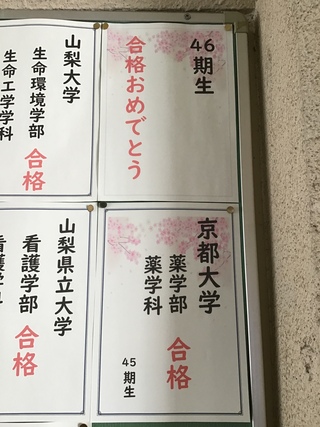 46期生
合格おめでとう
山梨大学
生命環境学部
生命工学学科
合格
京都大学
薬学部
薬学科
合格
45期生
山梨県立大学
看護学部
合格